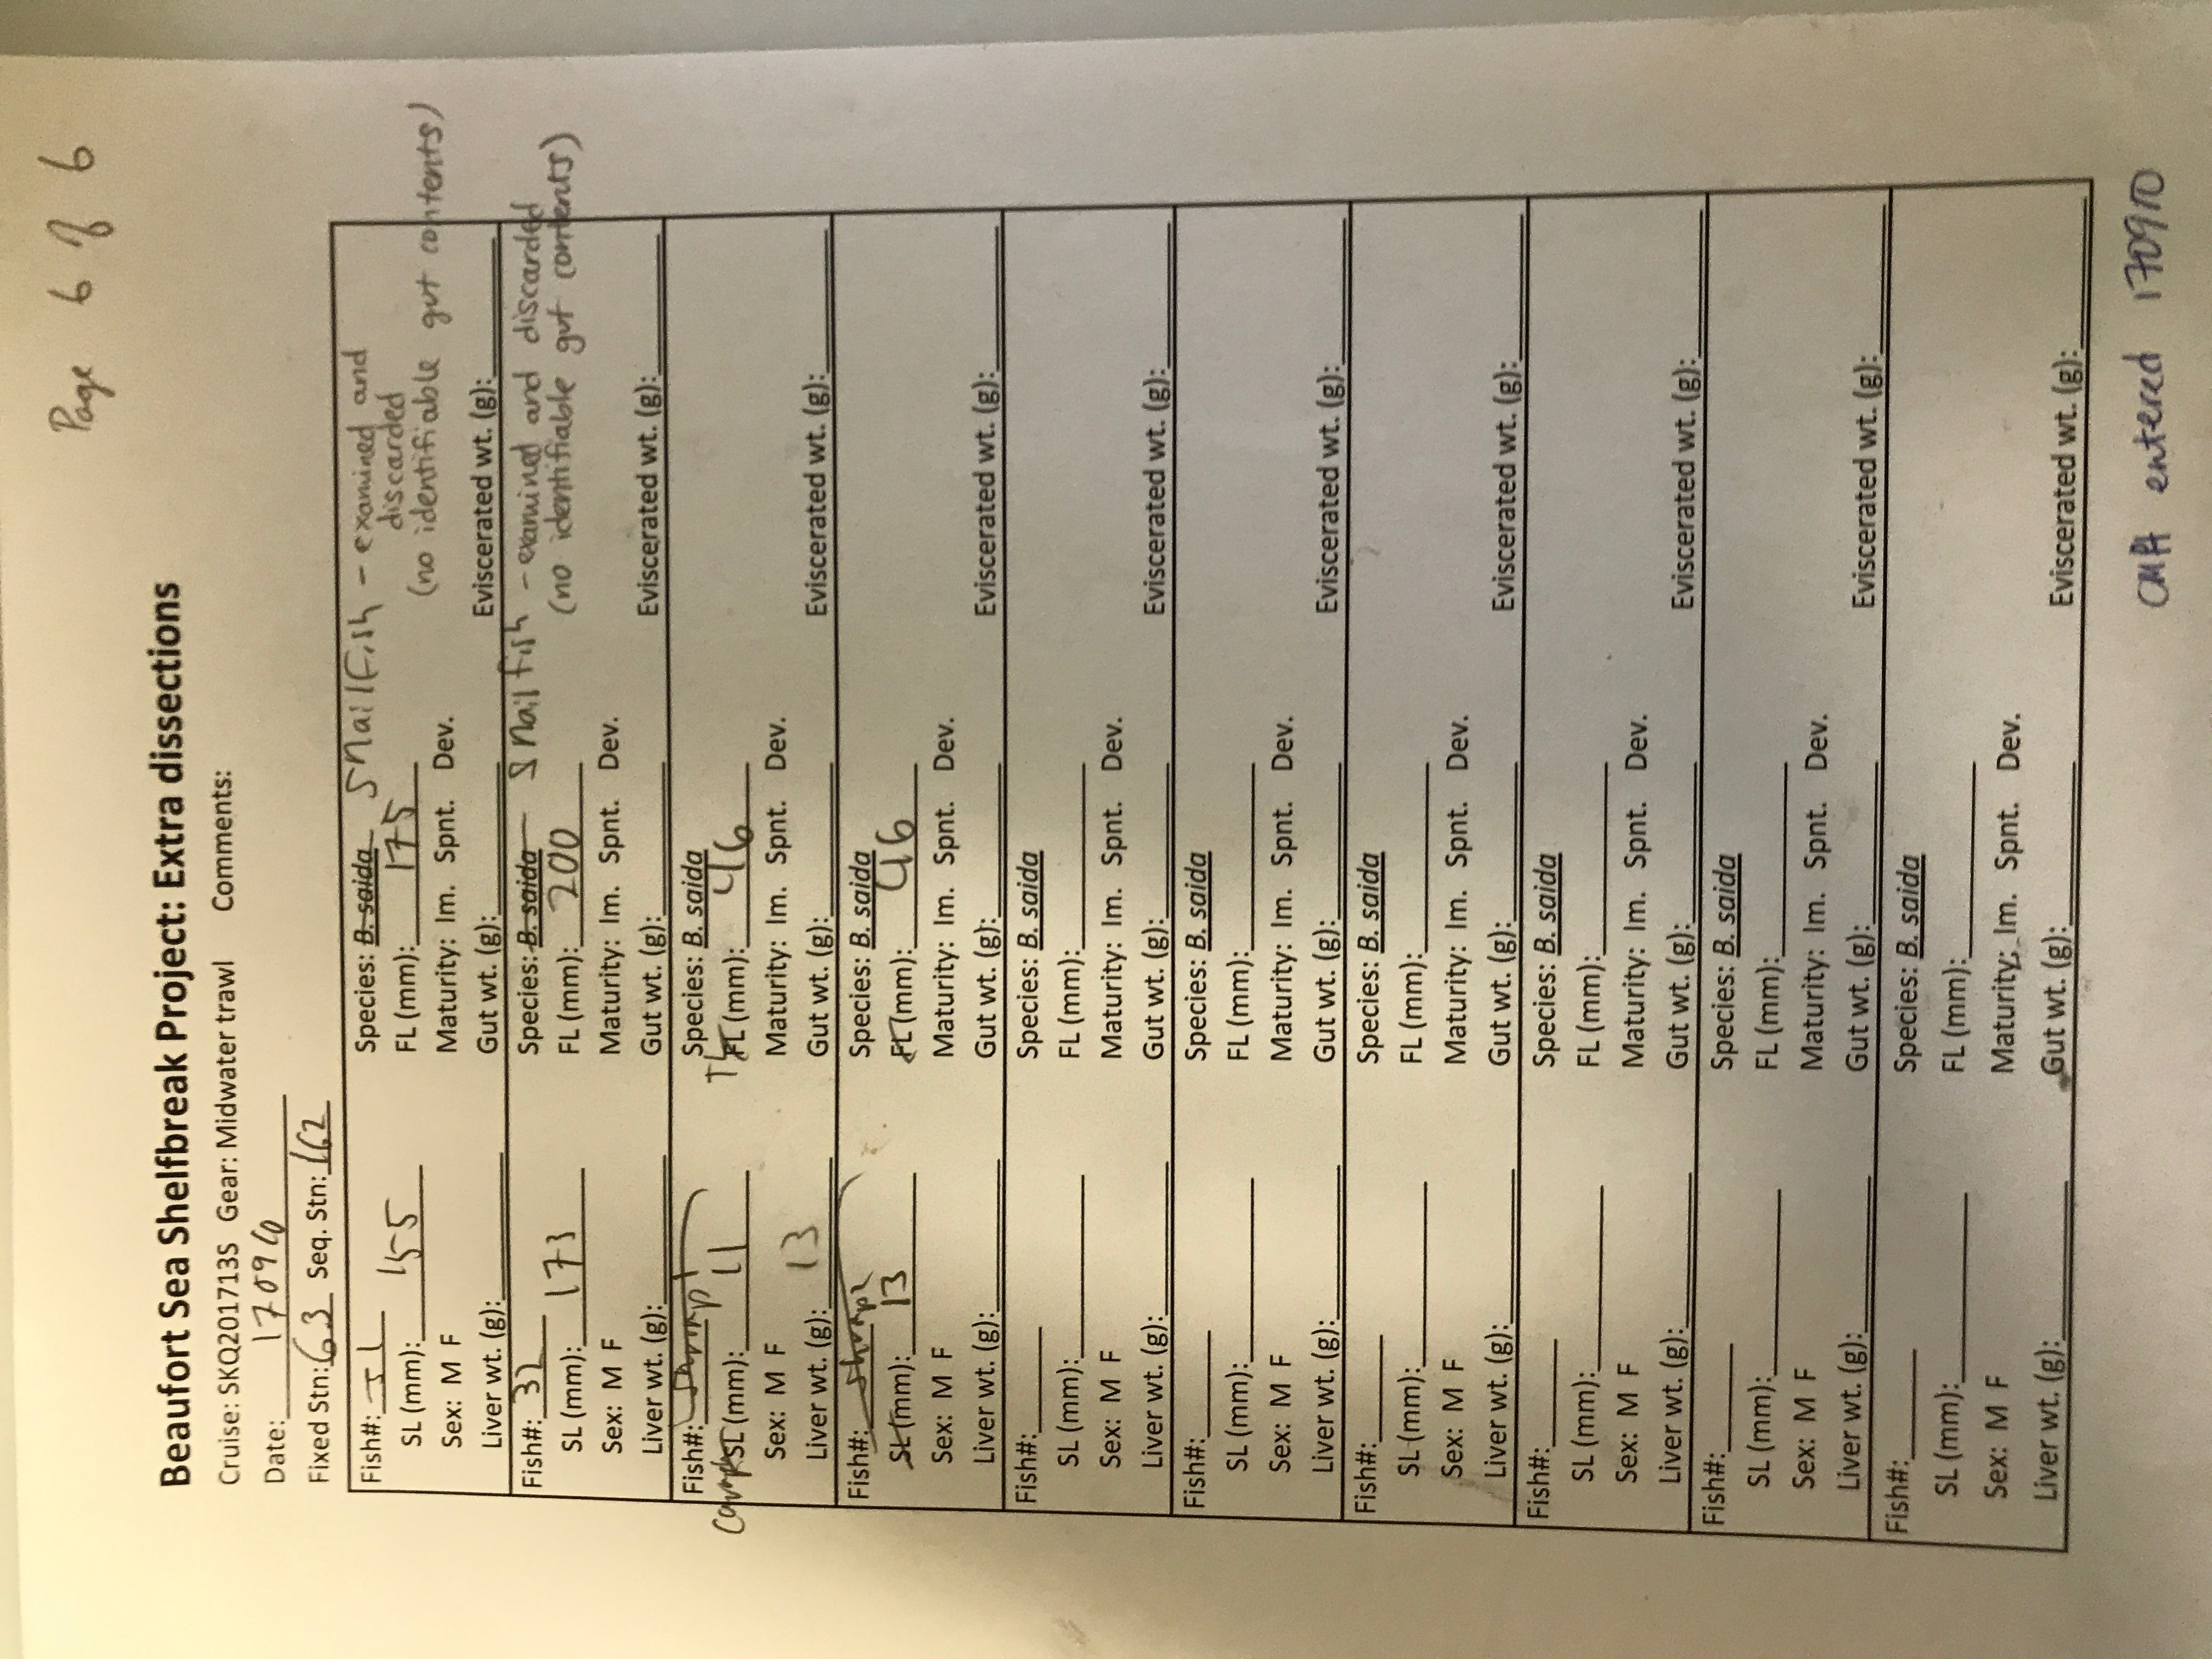 Page 6 of 6
Beaufort Sea Shelfbreak Project: Extra dissections
Cruise: SKQ201713S Gear: Midwater trawl Comments:
Date: 170910
Fixed Stn: 63 Seq. Stn: 162
Fish#: 31 Species: B. saida Snailfish - examined and discarded
SL (mm): 155 FL (mm): 175 (no identifiable gut contents)
Sex: M F Maturity: Im. Spnt. Dev.
Liver wt. (g): Gut wt. (g): Eviscerated wt. (g):
Fish#: 32 Species: B. saida Snailfish - examined and discarded
SL (mm): 173 FL (mm): 200 (no identifiable gut contents)
Sex: M F Maturity: Im. Spnt. Dev.
Liver wt. (g): Gut wt. (g): Eviscerated wt. (g):
Fish#: Shrimp 1 Species: B. saida
SL (mm): 11 FL (mm): 46
Sex: M F Maturity: Im. Spnt. Dev.
Liver wt. (g): 13 Gut wt. (g): Eviscerated wt. (g):
Fish#: Shrimp 2 Species: B. saida
SL (mm): 13 FL (mm): 46
Sex: M F Maturity: Im. Spnt. Dev.
Liver wt. (g): Gut wt. (g): Eviscerated wt. (g):
Fish#: Species: B. saida
SL (mm): FL (mm):
Sex: M F Maturity: Im. Spnt. Dev.
Liver wt. (g): Gut wt. (g): Eviscerated wt. (g):
Fish#: Species: B. saida
SL (mm): FL (mm):
Sex: M F Maturity: Im. Spnt. Dev.
Liver wt. (g): Gut wt. (g): Eviscerated wt. (g):
Fish#: Species: B. saida
SL (mm): FL (mm):
Sex: M F Maturity: Im. Spnt. Dev.
Liver wt. (g): Gut wt. (g): Eviscerated wt. (g):
Fish#: Species: B. saida
SL (mm): FL (mm):
Sex: M F Maturity: Im. Spnt. Dev.
Liver wt. (g): Gut wt. (g): Eviscerated wt. (g):
Fish#: Species: B. saida
SL (mm): FL (mm):
Sex: M F Maturity: Im. Spnt. Dev.
Liver wt. (g): Gut wt. (g): Eviscerated wt. (g):
Fish#: Species: B. saida
SL (mm): FL (mm):
Sex: M F Maturity: Im. Spnt. Dev.
Liver wt. (g): Gut wt. (g): Eviscerated wt. (g):
CMH entered 170910